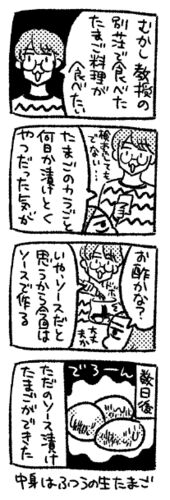 むかし教授の
別荘で食べた
たまご料理が
食べたい
検索しても
でない…
たまごのカラごと
何日か漬けとく
やつだった気が
お酢かな?
いや、ソースだと
思うから今回は
ソースで作る
大丈夫か
数日後
でろーん
ただのソース漬け
たまごができた
中身はふつうの生たまご